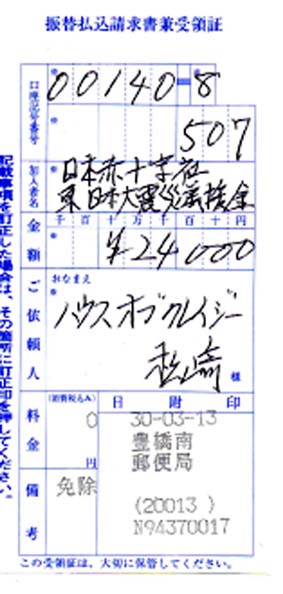 振替払込請求書兼受領証
口座記号番号
00140-8
507
加入者名
日本赤十字社
東日本大震災義援金
金額
千百十万千百十円
¥24000
ご依頼人
おなまえ
ハウスオブクレイジー
松崎 様
料金
(消費税込み)
0
円
日附印
30-03-13
豊橋南
郵便局
(20013 )
N94370017
備考
免除
この受領証は、大切に保管してください。
記載事項を訂正した場合は、その箇所に訂正印を押してください。